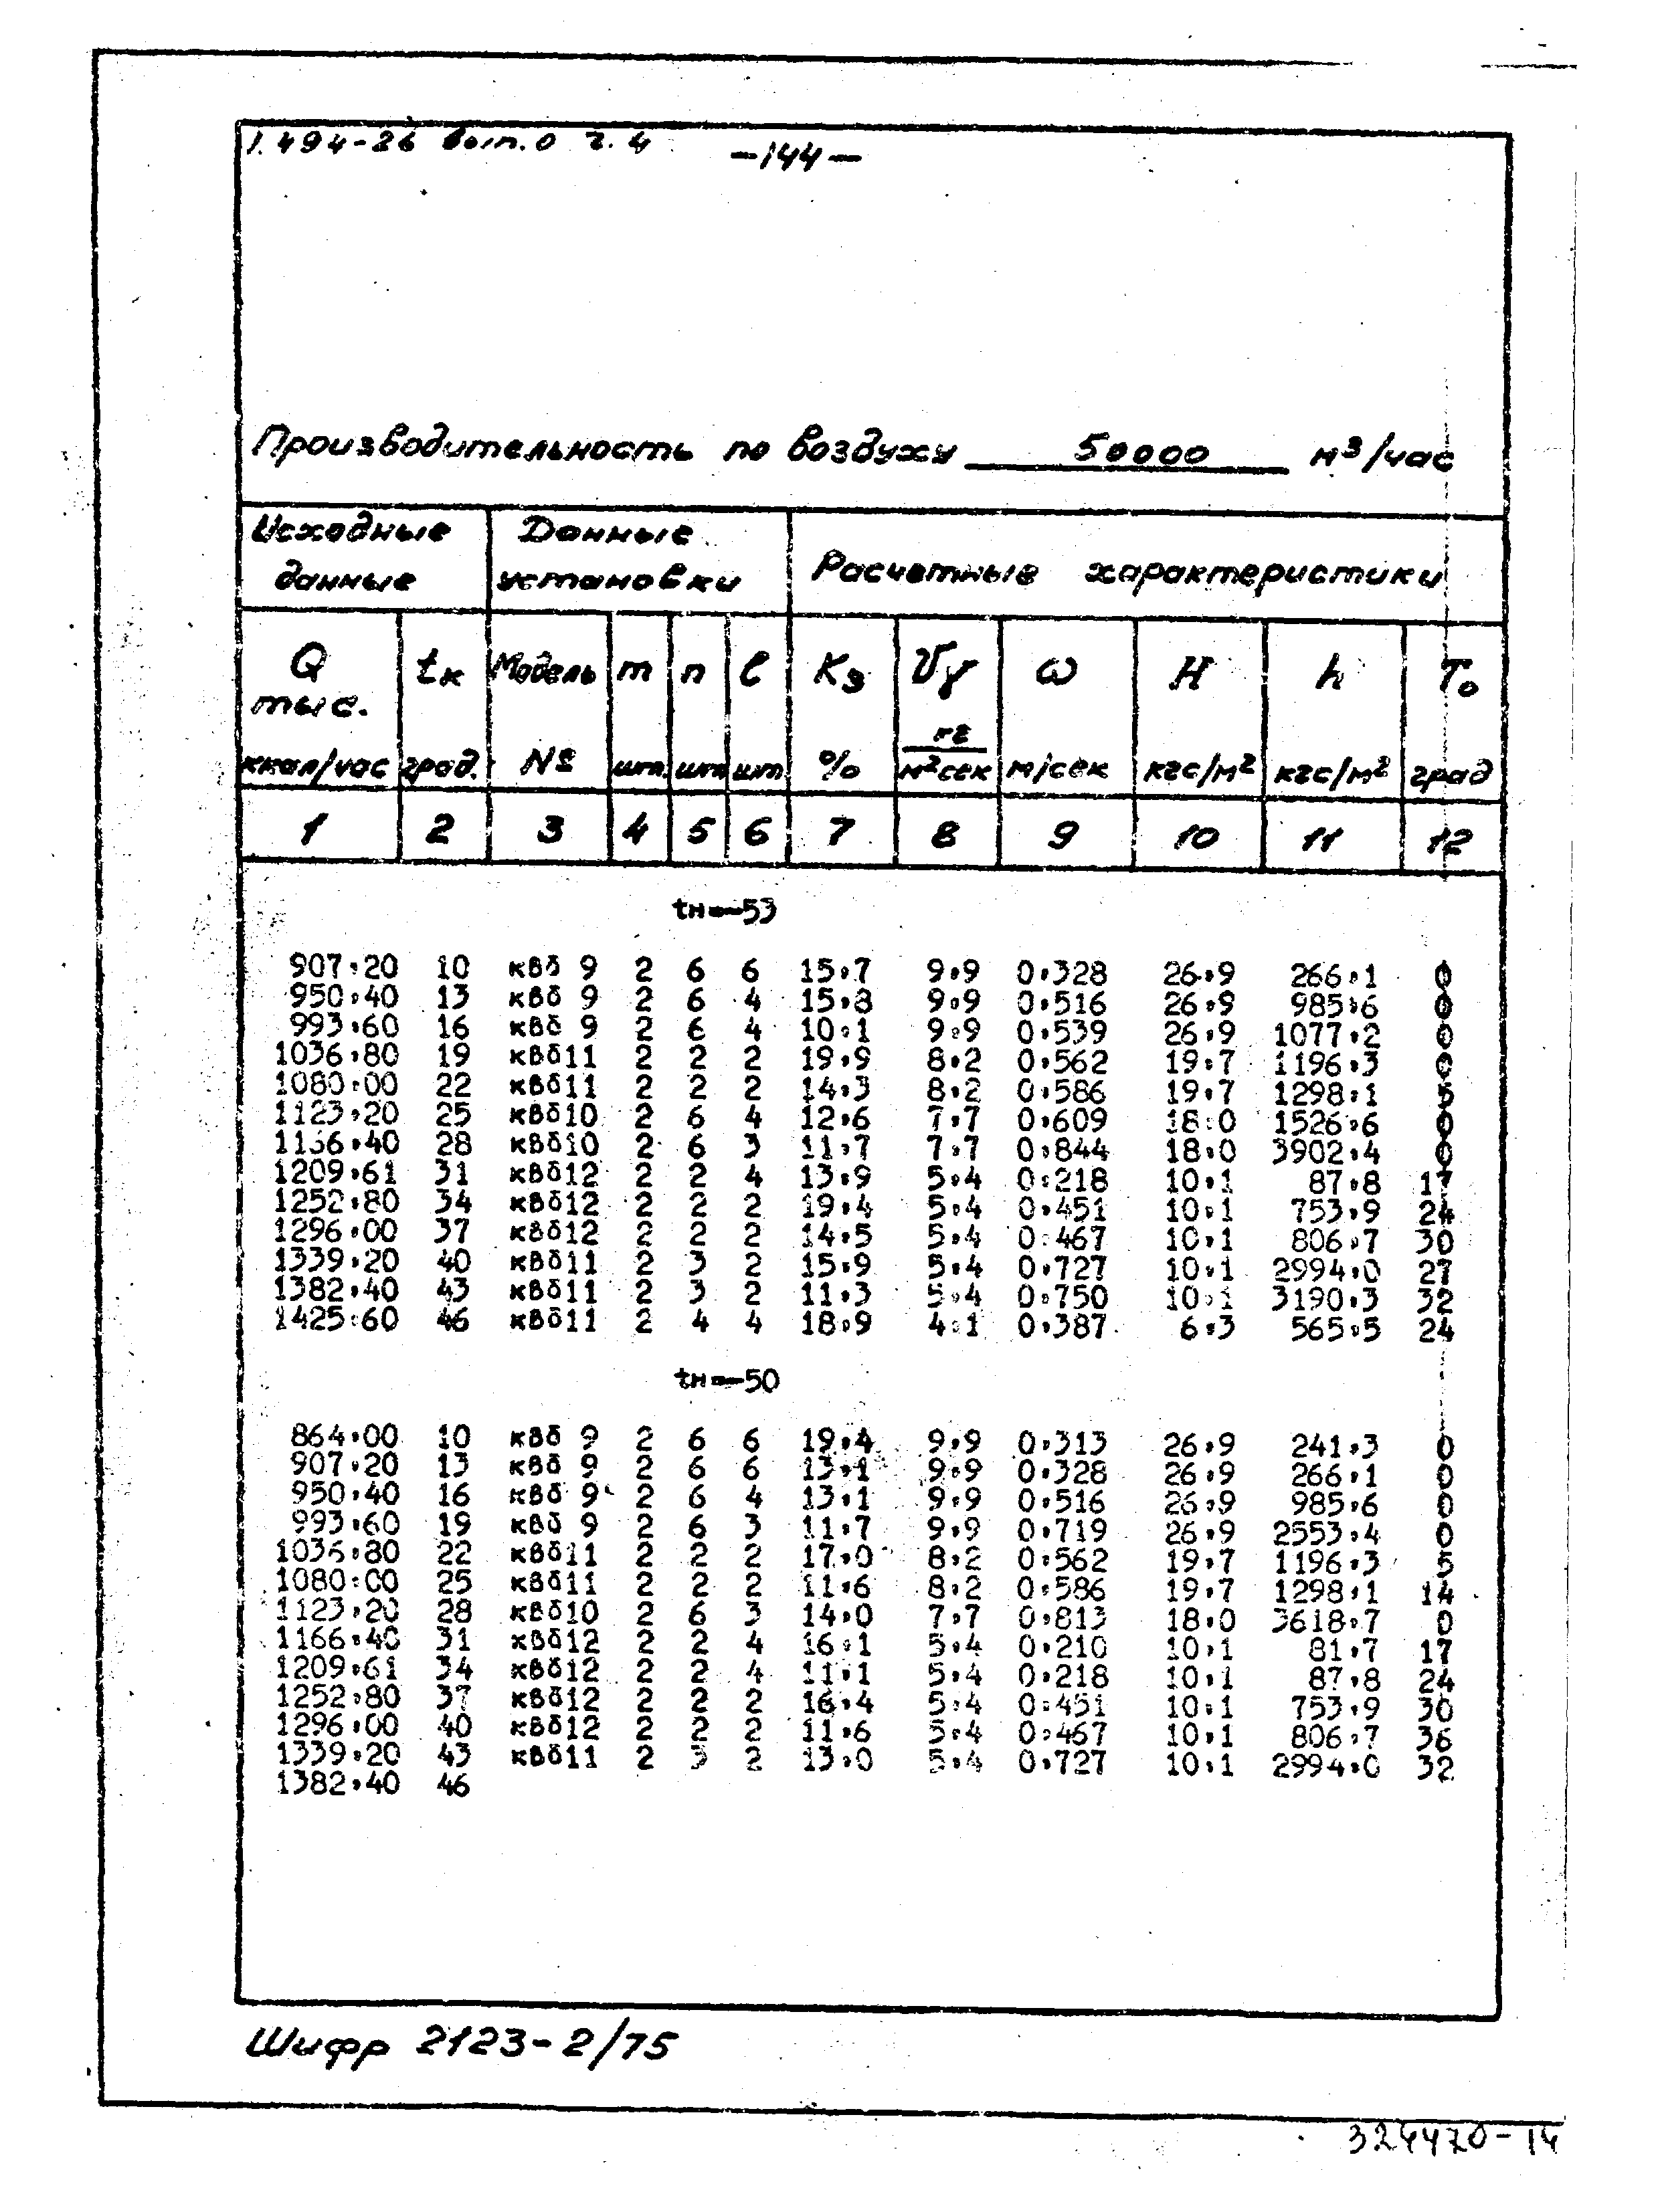 1.494-26 вып.0 г.4
-144-
Производительность по воздуху 50000 м³/час
Исходные данные Данные установки Расчетные характеристики
Q тыс. ккал/час tк град. Модель № m шт. n шт. l шт Kз % Vγ кг/м²сек ω м/сек H кгс/м² h кгс/м² To град
1 2 3 4 5 6 7 8 9 10 11 12
tн=-53
907,20 10 квб 9 2 6 6 15,7 9,9 0,328 26,9 266,1 0
950,40 13 квб 9 2 6 4 15,8 9,9 0,516 26,9 985,6 0
993,60 16 квб 9 2 6 4 10,1 9,9 0,539 26,9 1077,2 0
1036,80 19 квб11 2 2 2 19,9 8,2 0,562 19,7 1196,3 0
1080,00 22 квб11 2 2 2 14,3 8,2 0,586 19,7 1298,1 5
1123,20 25 квб10 2 6 4 12,6 7,7 0,609 18,0 1526,6 0
1166,40 28 квб10 2 6 3 11,7 7,7 0,844 18,0 3902,4 0
1209,61 31 квб12 2 2 4 13,9 5,4 0,218 10,1 87,8 17
1252,80 34 квб12 2 2 2 19,4 5,4 0,451 10,1 753,9 24
1296,00 37 квб12 2 2 2 14,5 5,4 0,467 10,1 806,7 30
1339,20 40 квб11 2 3 2 15,9 5,4 0,727 10,1 2994,0 27
1382,40 43 квб11 2 3 2 11,3 5,4 0,750 10,1 3190,3 32
1425,60 46 квб11 2 4 4 18,9 4,1 0,387 6,3 565,5 24
tн=-50
864,00 10 квб 9 2 6 6 19,4 9,9 0,313 26,9 241,3 0
907,20 13 квб 9 2 6 6 13,1 9,9 0,328 26,9 266,1 0
950,40 16 квб 9 2 6 4 13,1 9,9 0,516 26,9 985,6 0
993,60 19 квб 9 2 6 3 11,7 9,9 0,719 26,9 2553,4 0
1036,80 22 квб11 2 2 2 17,0 8,2 0,562 19,7 1196,3 5
1080,00 25 квб11 2 2 2 11,6 8,2 0,586 19,7 1298,1 14
1123,20 28 квб10 2 6 3 14,0 7,7 0,813 18,0 3618,7 0
1166,40 31 квб12 2 2 4 16,1 5,4 0,210 10,1 81,7 17
1209,61 34 квб12 2 2 4 11,1 5,4 0,218 10,1 87,8 24
1252,80 37 квб12 2 2 2 16,4 5,4 0,451 10,1 753,9 30
1296,00 40 квб12 2 2 2 11,6 5,4 0,467 10,1 806,7 36
1339,20 43 квб11 2 3 2 13,0 5,4 0,727 10,1 2994,0 32
1382,40 46
Шифр 2123-2/75
324470-14